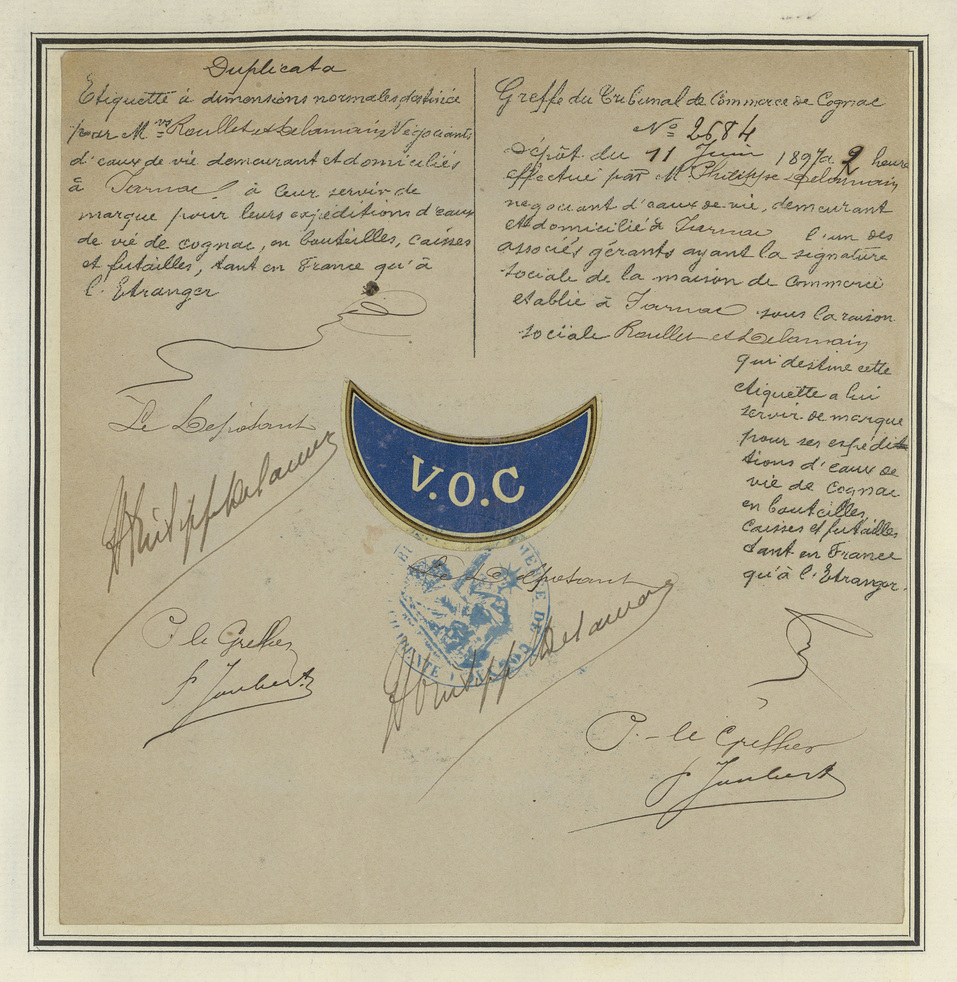 Duplicata
Etiquette à dimensions normales destinée
par M.rs Roullet et Delamain Négociants
d'eaux de vie demeurant et domiciliés
à Jarnac, à leur servir de
marque pour leurs expéditions d'eaux
de vie de cognac, en bouteilles, caisses
et futailles, tant en France qu'à
l'Etranger
Le Déposant
Philippe Delamain
P. le Greffier
P Joubert
Greffe du Tribunal de Commerce de Cognac
N° 2684
Dépôt du 11 Juin 1897 à 2 heures
effectué par M Philippe Delamain
négociant d'eaux de vie, demeurant
et domicilié à Jarnac l'un des
associés gérants ayant la signature
sociale de la maison de Commerce
etablie à Jarnac sous la raison
sociale Roullet et Delamain
qui destine cette
étiquette a lui
servir de marque
pour ses expédi
tions d'eaux de
vie de Cognac
en bouteilles,
caisses et futailles
tant en France
qu'à l'Etranger.
V.O.C
Le Déposant
Philippe Delamain
P. le Greffier
P Joubert